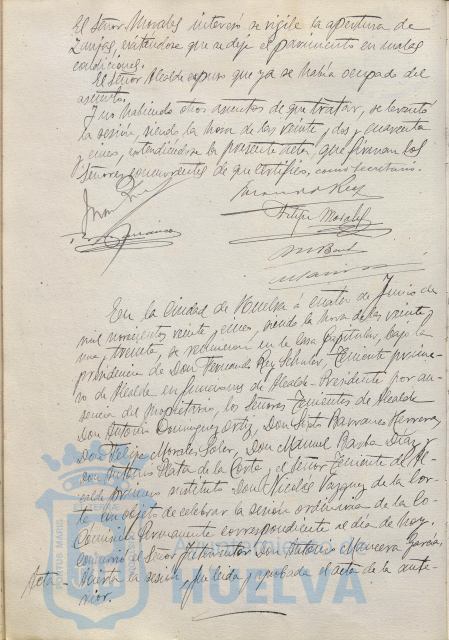 El Señor Morales interesó se vigile la apertura de
Zanjas, evitándose que se deje el pavimento en malas
condiciones.
El Señor Alcalde expuso que ya se había ocupado del
asunto.
Y no habiendo otros asuntos de que tratar, se levantó
la sesión, siendo la hora de las veinte y dos y cuarenta
y cinco, extendiéndose la presente acta, que firman los
Señores concurrentes de que certifico, como Secretario.
Felipe Morales
En la Ciudad de Huelva á cuatro de Junio de
mil novecientos veinte y cinco, siendo la hora de las veinte y
una y treinta, se reunieron en la Casa Capitular, bajo la
presidencia de Don Fernando Rey Teniente prime-
ro de Alcalde en funciones de Alcalde-Presidente por au-
sencia del propietario, los Señores Tenientes de Alcalde
Don Antonio Domínguez Ortiz, Don Sixto Barranco Herrera,
Don Felipe Morales Soler, Don Manuel Barba Díaz y
Don Antonio Plata de la Corte y el Señor Teniente de Al-
calde primero sustituto Don Nicolás Vazquez de la Cor-
te, con objeto de celebrar la sesión ordinaria de la Co-
misión Permanente correspondiente al día de hoy.
Concurrió el Señor Interventor Don Antonio García.
Acta - Abierta la sesión, fue leida y aprobada el acta de la ante-
rior.
HUELVA